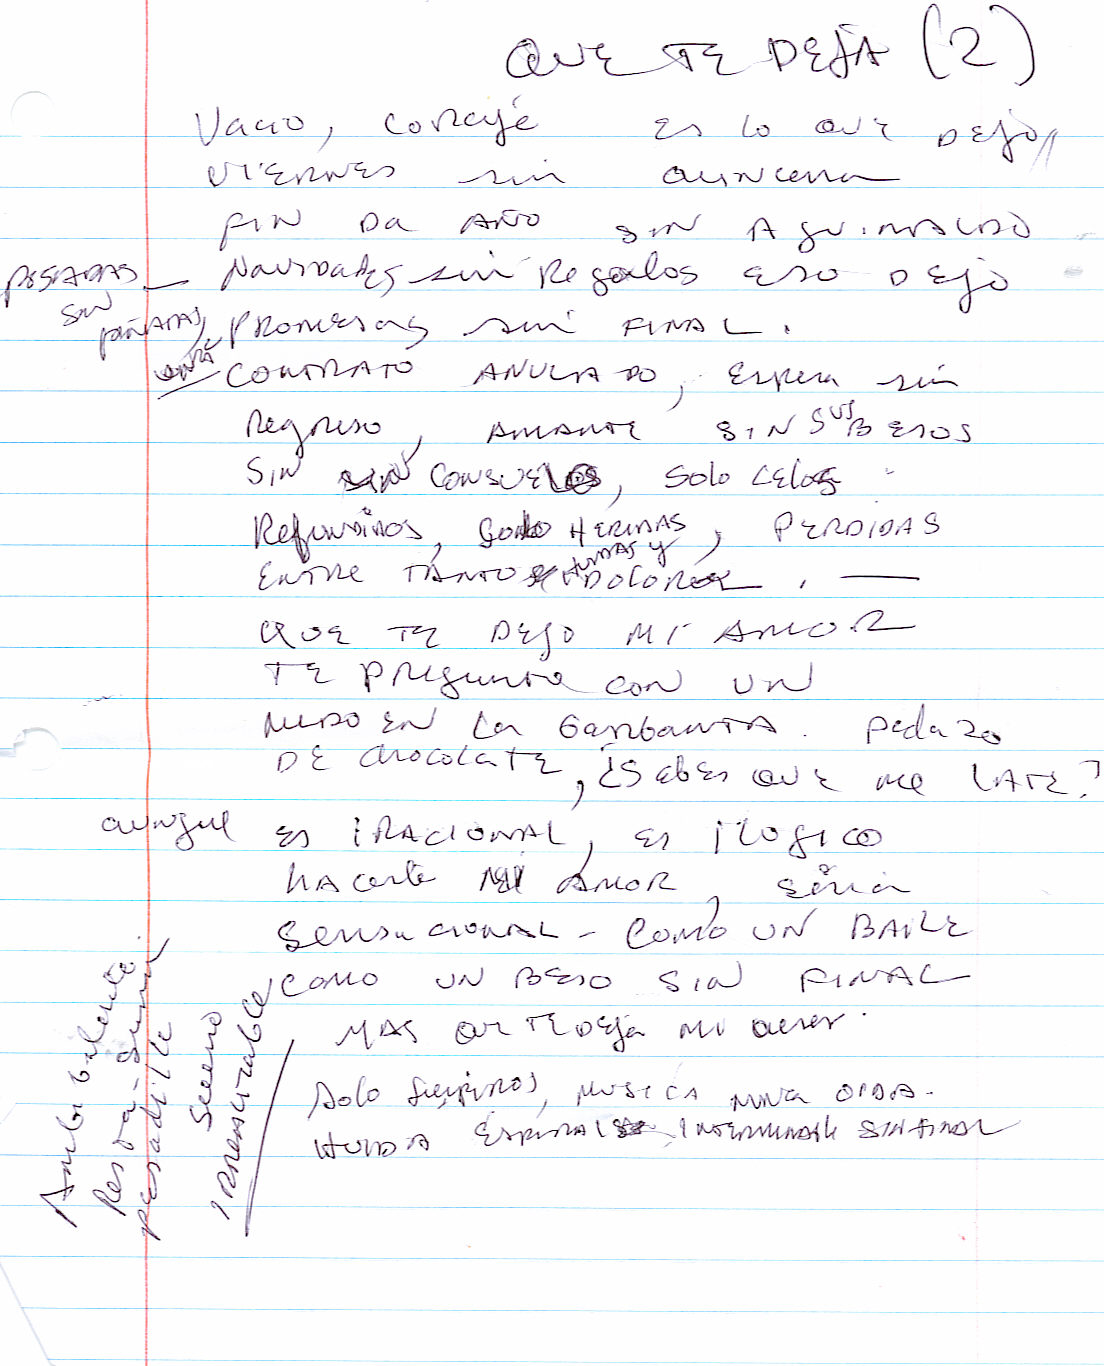 QUE TE DEJA (2)
Vacio, coraje es lo que DEJO,
VIERNES sin quincena
FIN DE AÑO SIN AGUINALDO
POSADAS — Navidades sin Regalos ESO DEJO
SIN
PiñATAS, PROMESAS sin FINAL.
CONTRATO ANULADO, Espera sin
Regreso, AMANTE SIN SUS BESOS
SIN CONSUELOS, SOLO CELOS
Refundidos, SOLO HERIDAS, PERDIDAS
ENTRE TANTO DUDAS Y DOLOR. —
QUE TE DEJO MI AMOR
TE PREGUNTA CON UN
NUDO EN LA GARGANTA. PEDAZO
DE CHOCOLATE, ¿SABES QUE ME LATE?
aunque ES IRACIONAL, ES ILOGICO
HACERTE MI AMOR, SERIA
SENSACIONAL - COMO UN BAILE
COMO UN BESO SIN FINAL
MAS QUE TE DEJA MI
SOLO SUSPIROS, MUSICA NUNCA OIDA.
HUNDA ESPIRAL INTERMINABLE SIN FINAL
Ambivalente.
pesadilla
Sereno
IRRESISTIBLE